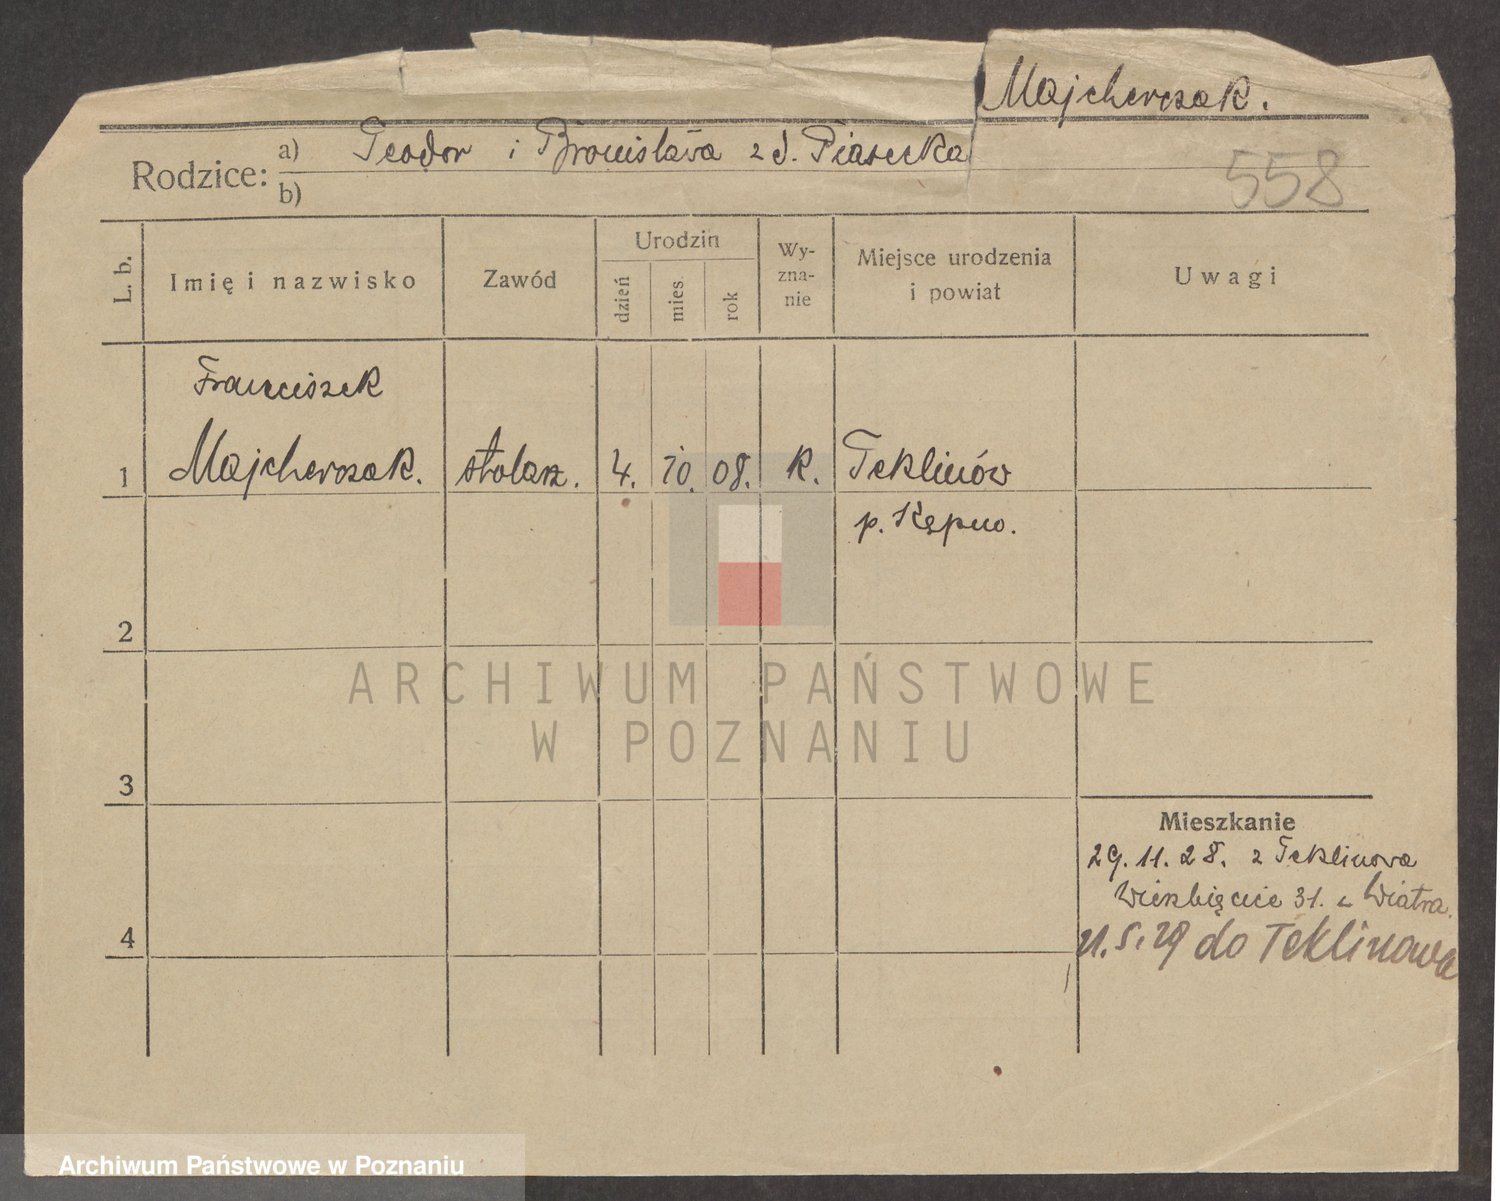 Majcherczak.
Rodzice: a) Teodor i Bronisława z d. Piasecka
b)
558
L. b.
Imię i nazwisko
Zawód
Urodzin
dzień
mies.
rok
Wy-
zna-
nie
Miejsce urodzenia
i powiat
Uwagi
Franciszek
1 Majcherczak. stolarz. 4. 10. 08. k. Teklinów
p. Kępno.
2
3
4
Mieszkanie
29.11.28. z Teklinowa
Wierzbięcice 31. Wiatra.
21.5.29 do Teklinowa
ARCHIWUM PAŃSTWOWE
W POZNANIU
Archiwum Państwowe w Poznaniu